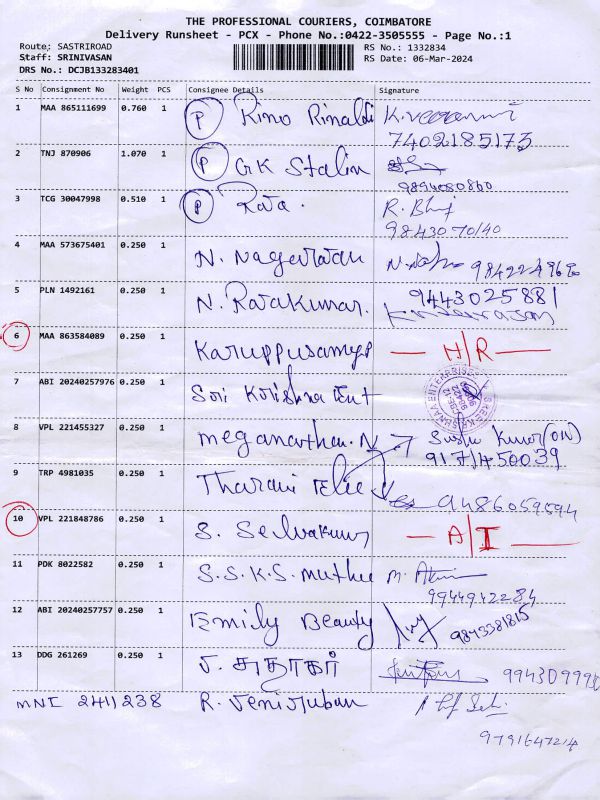 THE PROFESSIONAL COURIERS, COIMBATORE
Delivery Runsheet - PCX - Phone No.:0422-3505555 - Page No.:1
Route: SASTRIROAD RS No.: 1332834
Staff: SRINIVASAN RS Date: 06-Mar-2024
DRS No.: DCJB133283401
S No Consignment No Weight PCS Consignee Details Signature
1 MAA 865111699 0.760 1 P Rino Rinaldi
7402185173
2 TNJ 870906 1.070 1 P GK Stalin
9894080860
3 TCG 30047998 0.510 1 P Raja. R. Bhij
9843070140
4 MAA 573675401 0.250 1 N. Nagarajan
5 PLN 1492161 0.250 1 N. Rajakumar. 9443025881
6 MAA 863584089 0.250 1 Karuppusamy P H/R
7 ABI 20240257976 0.250 1 Sri Krishna Ent
8 VPL 221455327 0.250 1 Meganathan. N
9 TRP 4981035 0.250 1 Tharani Ele 9486059594
10 VPL 221848786 0.250 1 S. Selvakumar A/I
11 PDK 8022582 0.250 1 S.S.K.S. Muthu
9944942284
12 ABI 20240257757 0.250 1 Emily Beauty 9843381815
13 DDG 261269 0.250 1 J. சுதாகர்
MNI 2411238 R. Jenijuban
9791647214